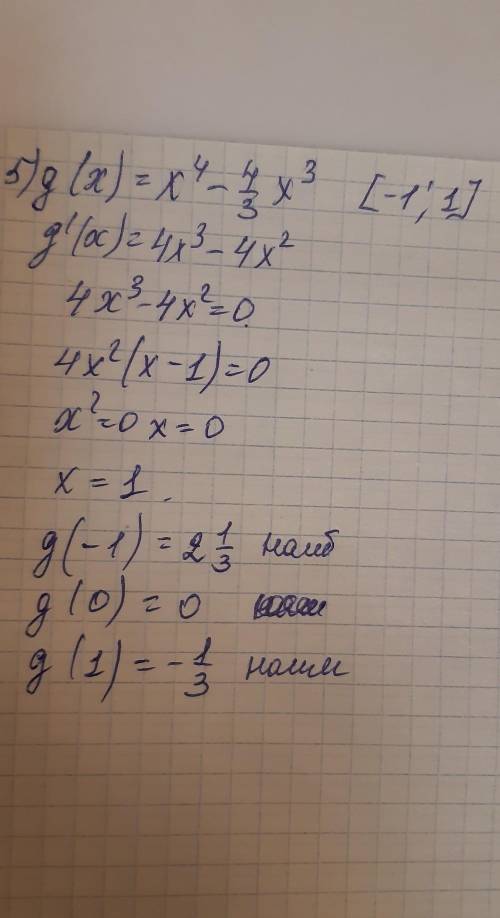 5) g(x) = x⁴ - 4/3 x³ [-1; 1]
g'(x) = 4x³ - 4x²
4x³ - 4x² = 0
4x²(x - 1) = 0
x² = 0 x = 0
x = 1.
g(-1) = 2 1/3 наиб
g(0) = 0
g(1) = - 1/3 наим